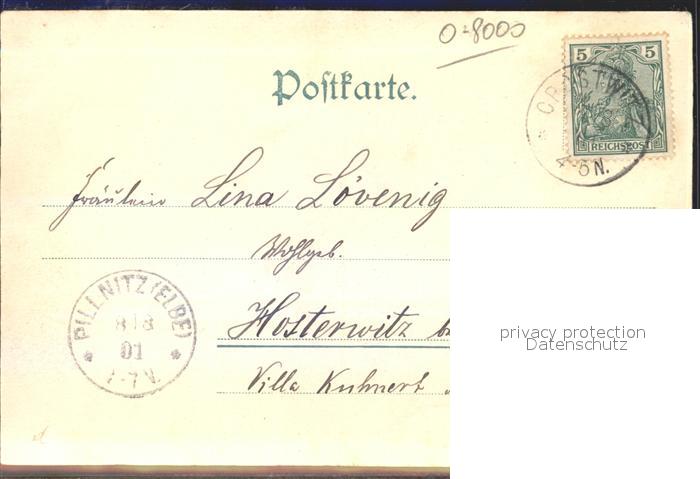 0-8000
5 5
Postkarte.
REICHSPOST
4-5 N.
Fräulein Lina Lövenig
Wohlgeb.
PILLNITZ (ELBE)
01
Hosterwitz
Villa Kuhnert
privacy protection
Datenschutz